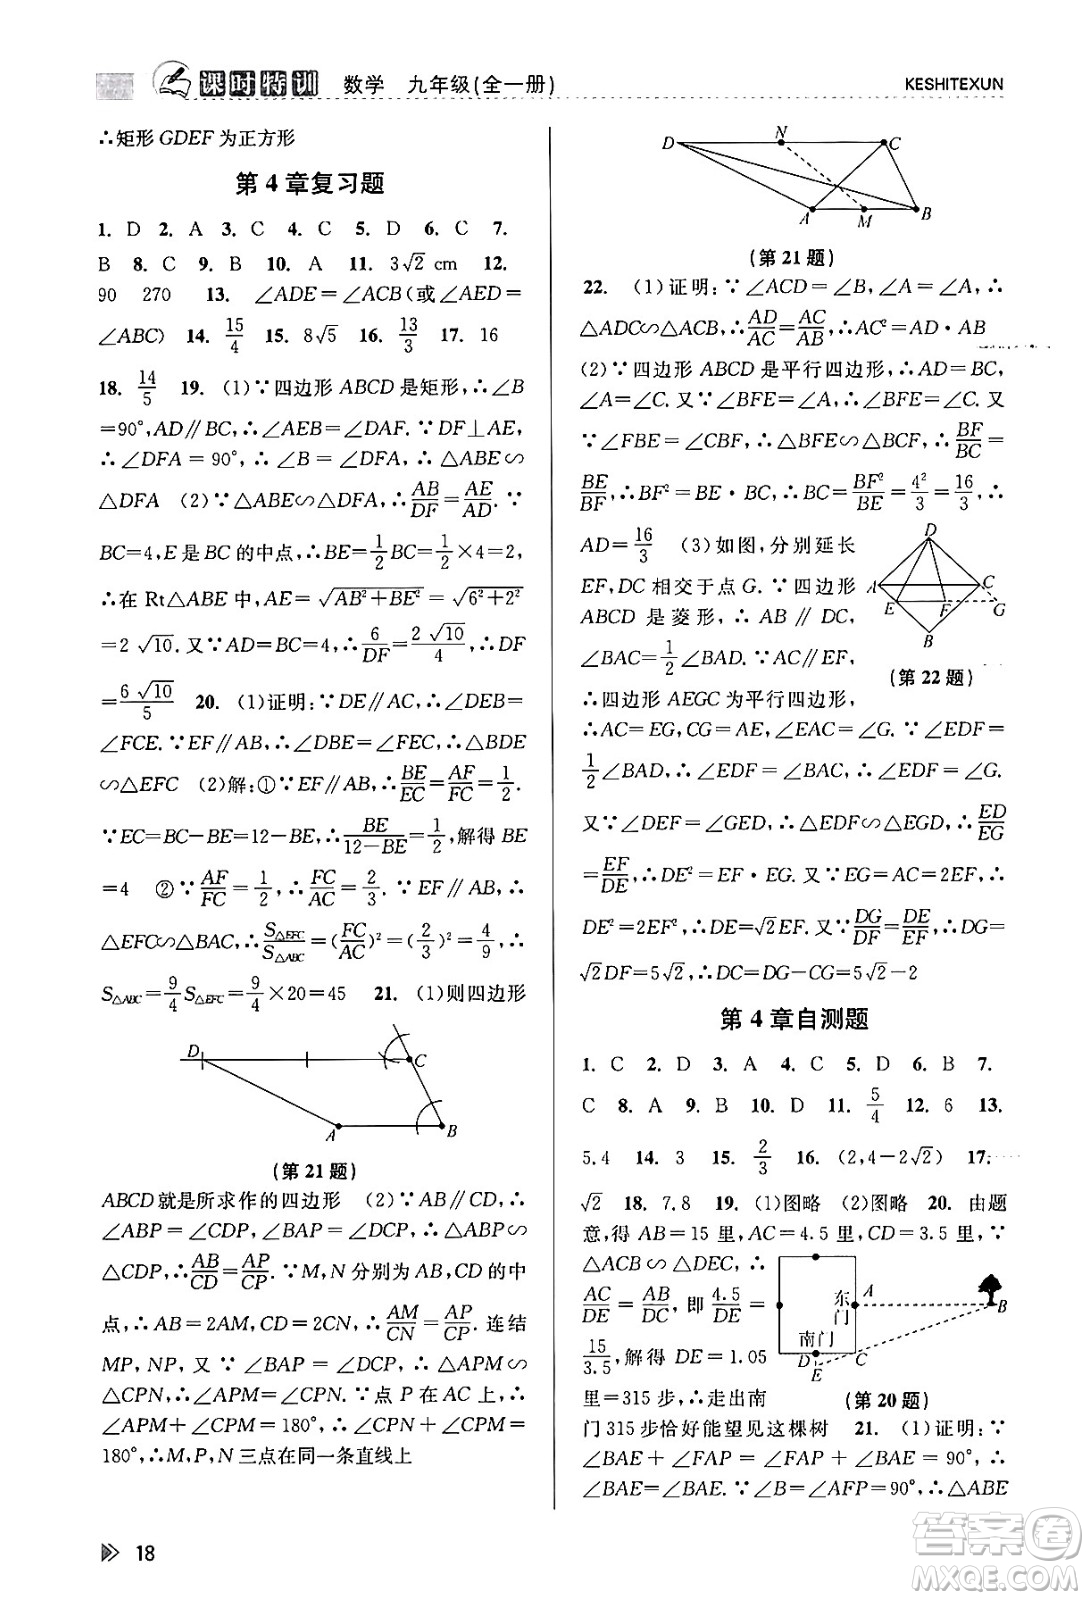 课时特训 数学 九年级(全一册)
KESHITEXUN
∴矩形 GDEF 为正方形
第 4 章复习题
1. D 2. A 3. C 4. C 5. C 6. C 7.
B 8. C 9. B 10. A 11. 3√2 cm 12.
90 270 13. ∠ADE=∠ACB(或∠AED=
∠ABC) 14. 15/4 15. 8√5 16. 13/3 17. 16
18. 14/5 19. (1)∵四边形 ABCD 是矩形,∴∠B
=90°,AD∥BC,∴∠AEB=∠DAF.∵DF⊥AE,
∴∠DFA = 90°,∴∠B=∠DFA,∴△ABE∽
△DFA (2)∵△ABE∽△DFA,∴AB/DF=AE/AD.∵
BC=4,E 是 BC 的中点,∴BE=1/2BC=1/2×4=2,
∴在 Rt△ABE 中,AE=√(AB²+BE²)=√(6²+2²)
=2√10.又∵AD=BC=4,∴6/DF=2√10/4,∴DF
=6√10/5 20. (1)证明:∵DE∥AC,∴∠DEB=
∠FCE.∵EF∥AB,∴∠DBE=∠FEC,∴△BDE
∽△EFC (2)解:①∵EF∥AB,∴BE/EC=AF/FC=1/2.
∵EC=BC-BE=12-BE,∴BE/(12-BE)=1/2,解得 BE
=4 ②∵AF/FC=1/2,∴FC/AC=2/3.∵EF∥AB,∴
△EFC∽△BAC,∴S△EFC/S△ABC=(FC/AC)²=(2/3)²=4/9,∴
S△ABC=9/4S△EFC=9/4×20=45 21. (1)则四边形
D C A B
(第 21 题)
ABCD就是所求作的四边形 (2)∵AB∥CD,∴
∠ABP=∠CDP,∠BAP=∠DCP,∴△ABP∽
△CDP,∴AB/CD=AP/CP.∵M,N 分别为 AB,CD 的中
点,∴AB=2AM,CD=2CN,∴AM/CN=AP/CP.连结
MP,NP,又∵∠BAP=∠DCP,∴△APM∽
△CPN,∴∠APM=∠CPN.∵点 P 在 AC 上,∴
∠APM+∠CPM=180°,∴∠CPN+∠CPM=
180°,∴M,P,N 三点在同一条直线上
18
D N C A M B
(第 21 题)
22. (1)证明:∵∠ACD=∠B,∠A=∠A,∴
△ADC∽△ACB,∴AD/AC=AC/AB,∴AC²=AD·AB
(2)∵四边形 ABCD 是平行四边形,∴AD=BC,
∠A=∠C.又∵∠BFE=∠A,∴∠BFE=∠C.又
∵∠FBE=∠CBF,∴△BFE∽△BCF,∴BF/BC=
BE/BF,∴BF²=BE·BC,∴BC=BF²/BE=4²/3=16/3,∴
AD=16/3 (3)如图,分别延长
EF,DC 相交于点 G.∵四边形
ABCD 是菱形,∴AB∥DC,
∠BAC=1/2∠BAD.∵AC∥EF,
D A C E F G B
(第 22 题)
∴四边形 AEGC 为平行四边形,
∴AC=EG,CG=AE,∠EAC=∠G.∵∠EDF=
1/2∠BAD,∴∠EDF=∠BAC,∴∠EDF=∠G.
又∵∠DEF=∠GED,∴△EDF∽△EGD,∴ED/EG
=EF/DE,∴DE²=EF·EG.又∵EG=AC=2EF,∴
DE²=2EF²,∴DE=√2EF.又∵DG/DF=DE/EF,∴DG=
√2DF=5√2,∴DC=DG-CG=5√2-2
第 4 章自测题
1. C 2. D 3. A 4. C 5. D 6. B 7.
C 8. A 9. B 10. D 11. 5/4 12. 6 13.
5.4 14. 3 15. 2/3 16. (2,4-2√2) 17.
√2 18. 7.8 19. (1)图略 (2)图略 20. 由题
意,得 AB=15 里,AC=4.5 里,CD=3.5 里,∵
△ACB∽△DEC,∴
AC/DE=AB/DC,即4.5/DE=
15/3.5,解得 DE=1.05
里=315 步,∴走出南
东门 A B 南门 D E C
(第 20 题)
门 315步恰好能望见这棵树 21. (1)证明:∵
∠BAE+∠FAP=∠FAP+∠APF=90°,∴
∠BAE=∠APF.∵∠B=∠AFP=90°,∴△ABE
答案圈
MXQE.COM